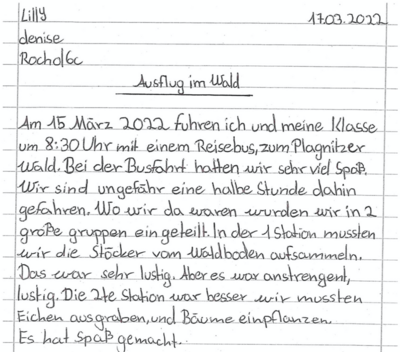 Lilly 17.03.2022
denise
Rochol6c
Ausflug im Wald
Am 15 März 2022 fuhren ich und meine Klasse
um 8:30 Uhr mit einem Reisebus, zum Plagnitzer
Wald. Bei der Busfahrt hatten wir sehr viel Spaß.
Wir sind ungefähr eine halbe Stunde dahin
gefahren. Wo wir da waren wurden wir in 2
große gruppen ein geteilt. In der 1 Station mussten
wir die Stöcker vom Waldboden aufsammeln.
Das war sehr lustig. Aber es war anstrengent,
lustig. Die 2te Station war besser wir mussten
Eichen ausgraben, und Bäume einpflanzen.
Es hat Spaß gemacht.